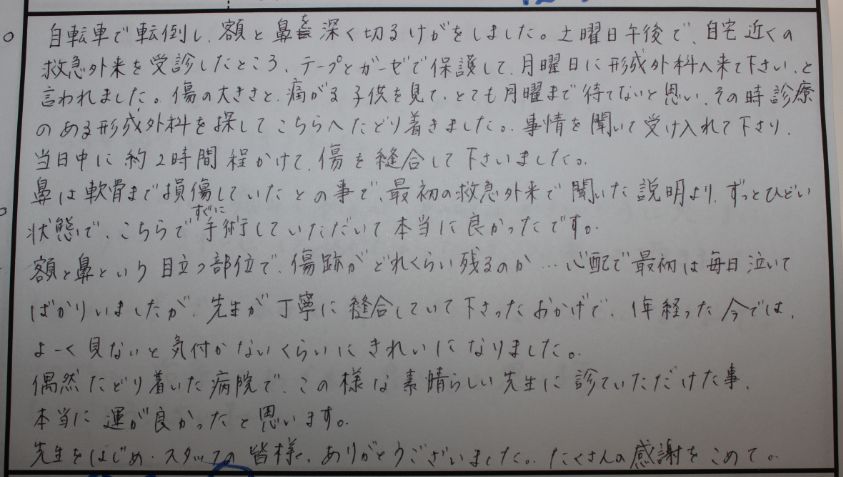 自転車で転倒し、額と鼻を深く切るけがをしました。土曜日午後で、自宅近くの
救急外来を受診したところ、テープとガーゼで保護して、月曜日に形成外科へ来て下さい、と
言われました。傷の大きさと、痛がる子供を見て、とても月曜まで待てないと思い、その時診療
のある形成外科を探してこちらへたどり着きました。事情を聞いて受け入れて下さり、
当日中に約2時間程かけて、傷を縫合して下さいました。
鼻は軟骨まで損傷していたとの事で、最初の救急外来で聞いた説明より、ずっとひどい
状態で、こちらですぐに手術していただいて本当に良かったです。
額と鼻という目立つ部位で、傷跡がどれくらい残るのか…心配で最初は毎日泣いて
ばかりいましたが、先生が丁寧に縫合していて下さったおかげで、1年経った今では、
よーく見ないと気付かないくらいにきれいになりました。
偶然たどり着いた病院で、この様な素晴らしい先生に診ていただけた事、
本当に運が良かったと思います。
先生をはじめ、スタッフの皆様、ありがとうございました。たくさんの感謝をこめて。